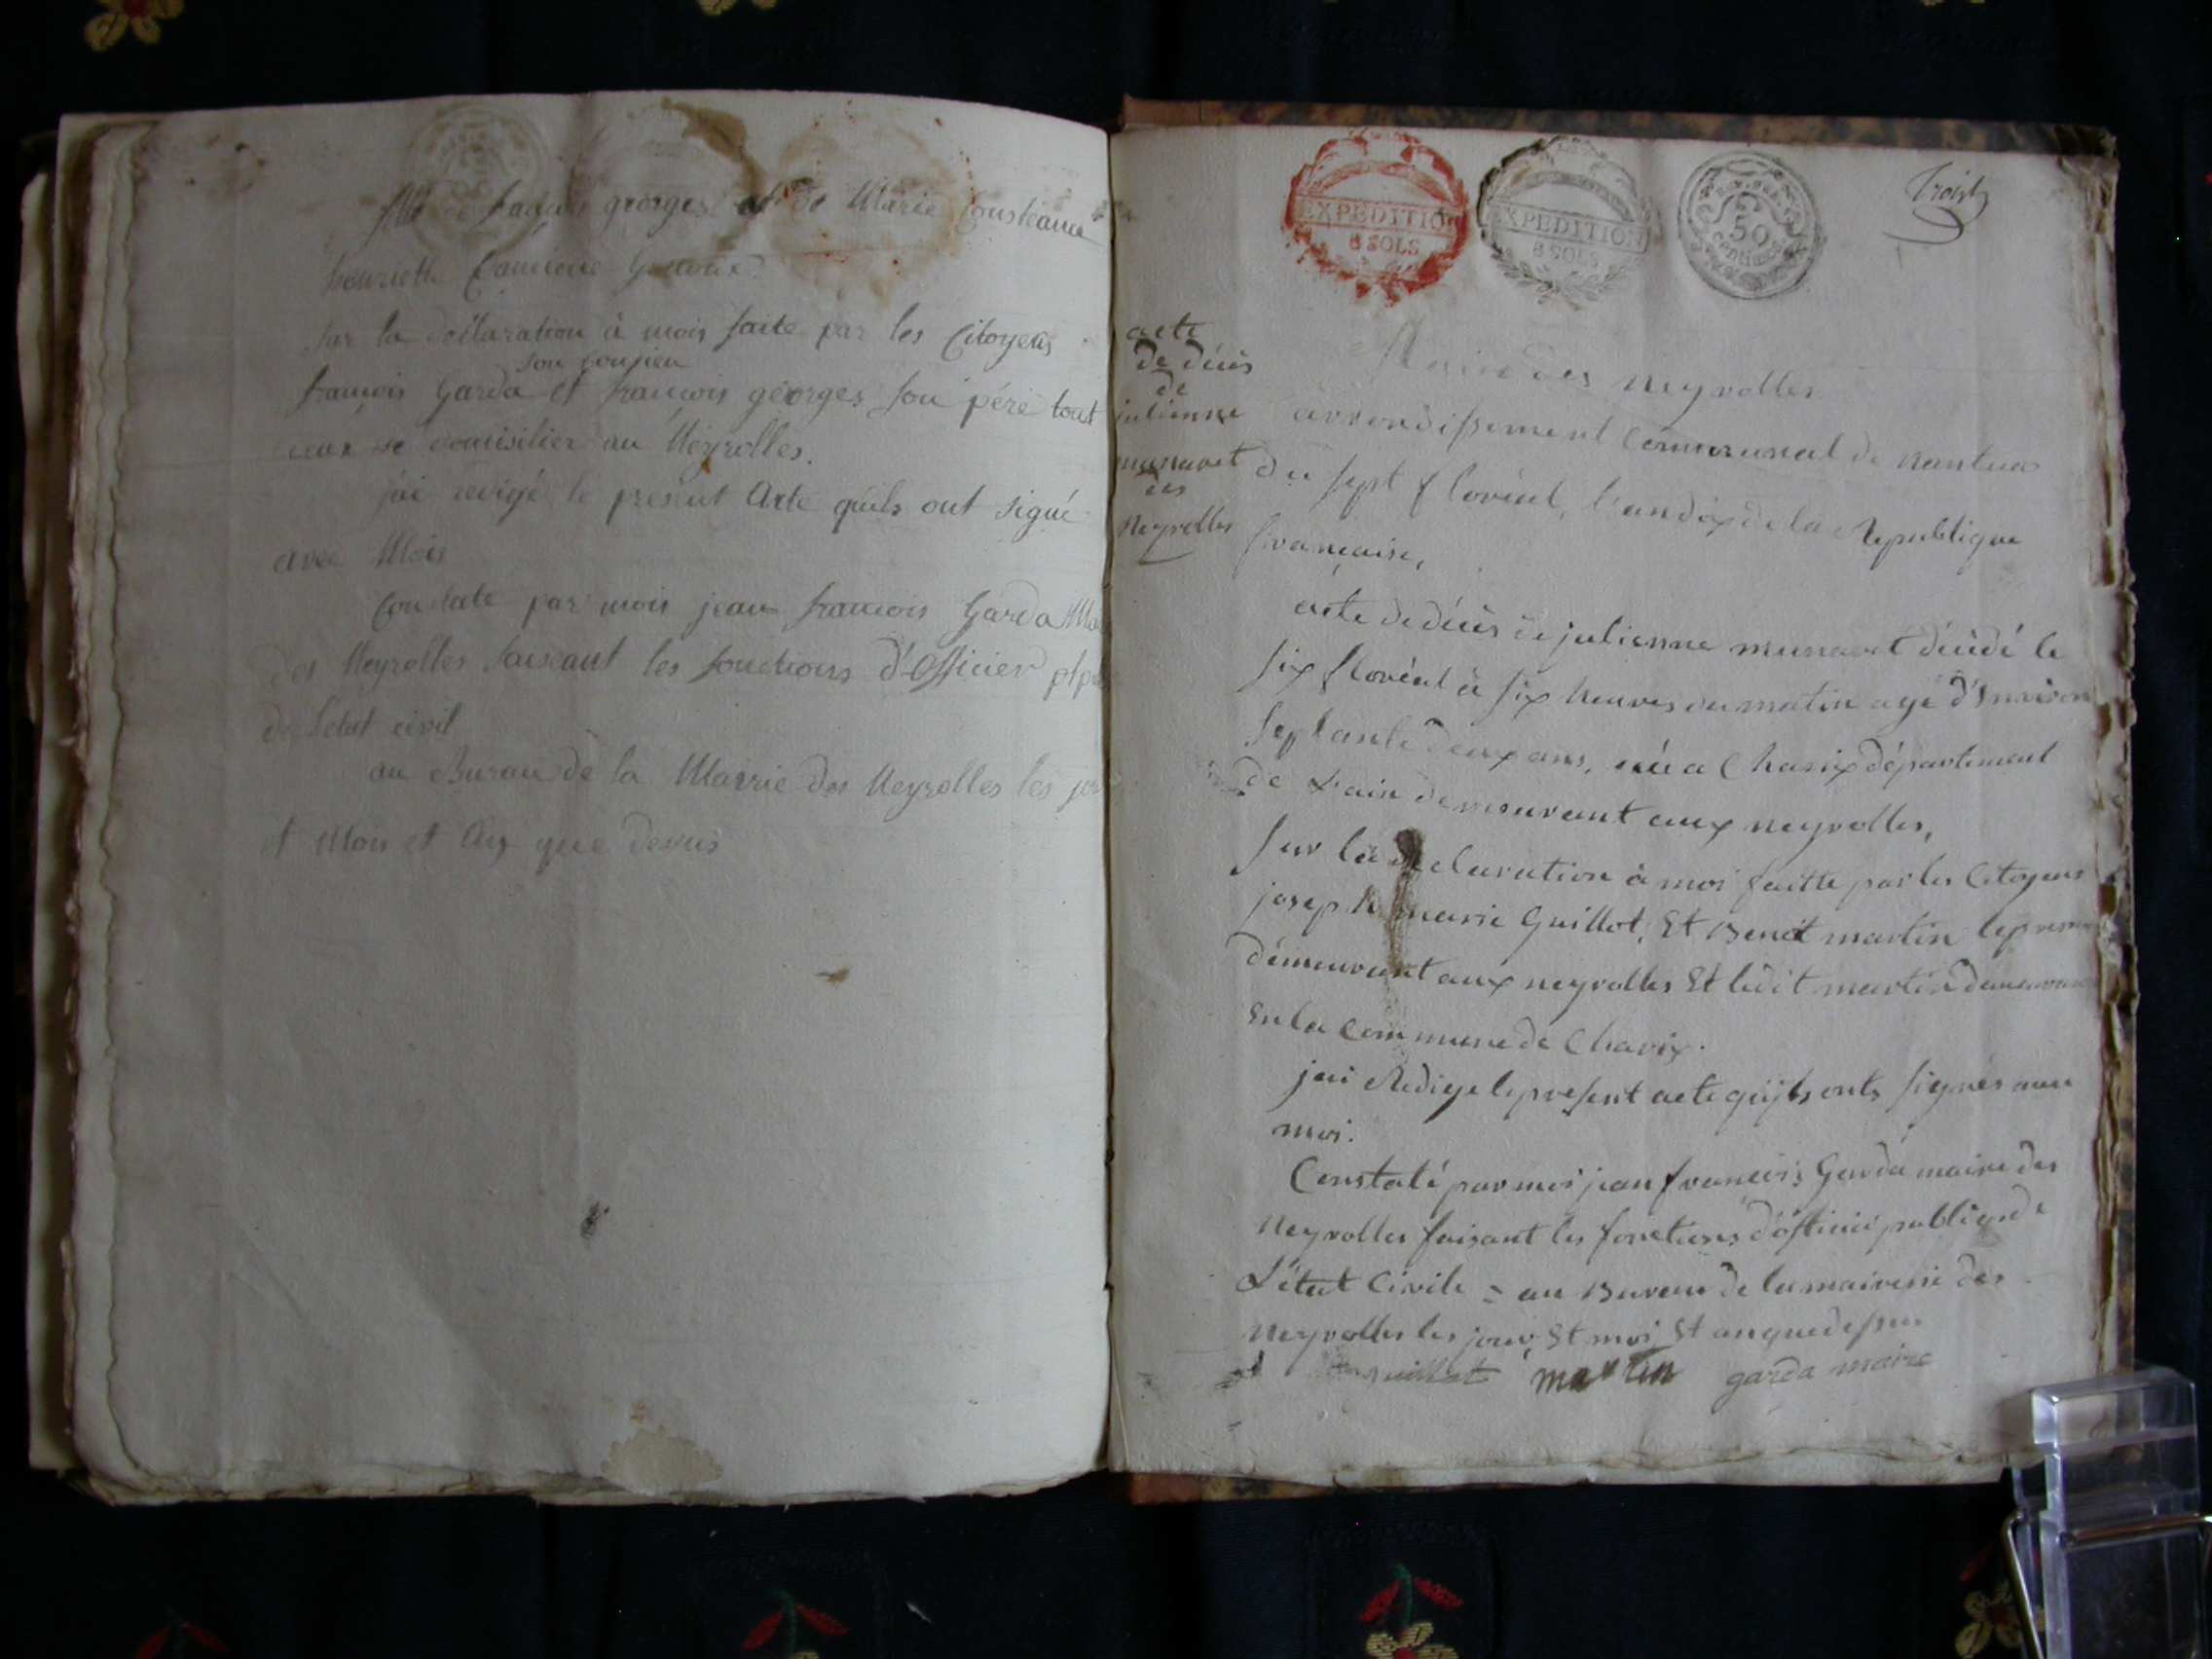 françois georges et de Marie
henriette
sur la déclaration à mois faite par les Citoyens
son cousien
françois Garda et françois géorges son pére tout
ceux se domisilier au Neyrolles.
jái redigé le present Acte quils ont signé
avec Mois
Constate par mois jean francois Garda
des Neyrolles faiseant les fonctions d'Officier
de letat civil
au Burau de la Mairie des Neyrolles les
et Mois et An que desus
EXPEDITION
8 SOLS
EXPEDITION
8 SOLS
50
centimes
acte
de décès
de
julienne
munavet
des
Neyrolles
Mairie des neyrolles
arrondissement Communal de nantua
du sept floréal, l'an dix de la Republique
française,
acte de décès de julienne munavet décédé le
six floréal à six heures du matin agé d'Environ
septante deux ans, née a Charix département
de L'ain demeurant aux neyrolles,
sur la declaration à moi faitte par les Citoyens
joseph marie Guillot, Et Benoit martin le
démeurant aux neyrolles Et ledit martin
En la Commune de Charix.
jai Redige le present acte qu'ils onts signés avec
moi.
Constaté par moi jean francois Garda maire des
Neyrolles faisant les fonctions d'officié public de
L'état Civile = au Bureau de la mairerie des
Neyrolles les jour, Et moi Et an que dessus
guillot martin garda maire